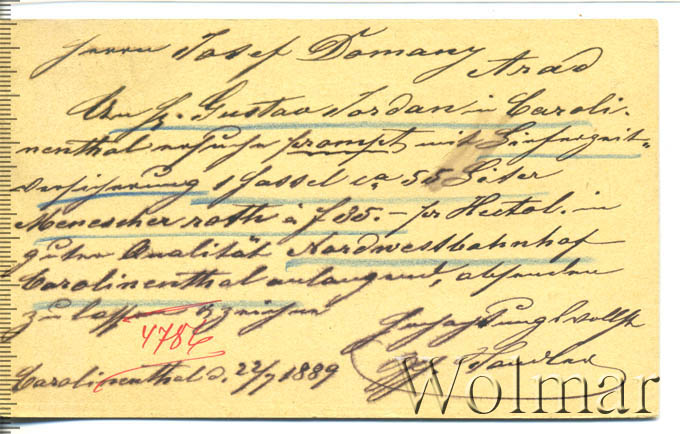 Herrn Josef Domany
Arad
An H. Gustav Jordan in Caroli-
nenthal ersuche prompt mit Lieferzeit-
versicherung 1 Fassel ca 55 Liter
Menescher roth à f 35.- pr Hectol. in
guter Qualität Nordwestbahnhof
Carolinenthal anlangend, absenden
zu lassen & zeichne
4786
Hochachtungsvollst
Carolinenthal d. 22/7 1889
Wolmar